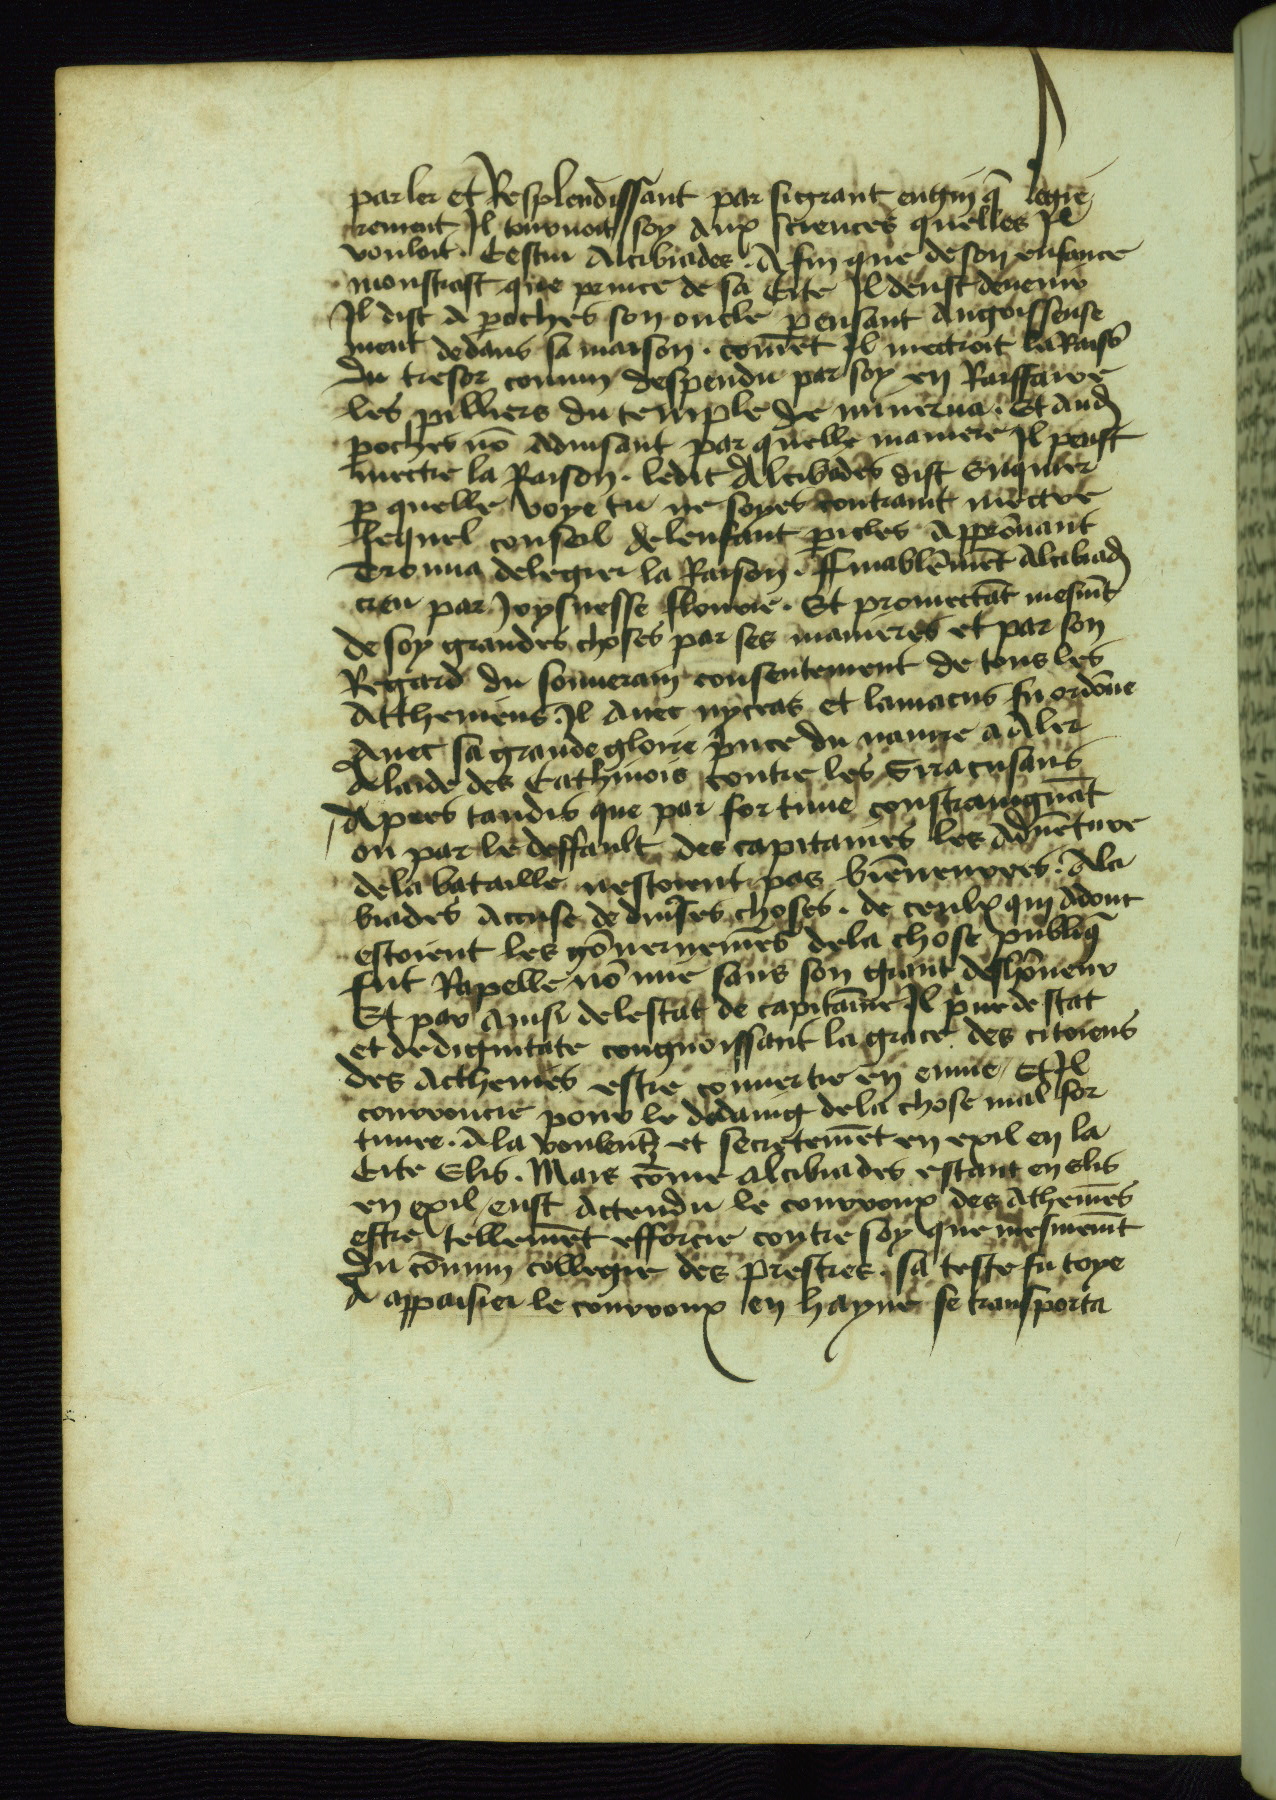 parler et Resplendissant par si grant engin q̃ legie
rement Il tournoit soy aux sciences quelles Il
vouloit . Cestui Alcibiades . A fin que de son enfance
monstrast que prince de sa Cite Il deust devenir
Il dist a p̲ocles son oncle pensant angoisseuse
ment dedans sa maison . com̃et Il mectroit la Raisõ
du tresor comun despendu par soy en Raiffaire
les pilliers du temple de minerua . Et aud
p̲ocles nõ aduisant par quelle maniere Il peust
mectre la Raison . ledit Alcibiades dist Enquier
p̲ quelle voye tu ne soyes contraint mectre
lequel conseil de lenfant p̲icles approuuant
Trouua de legier la Raison . ffinablemẽt Alcibiad
creu par Joysnesse flourie . Et promectãt mesmẽt
de soy grandes choses par ses manieres et par son
Regard du souuerain consentement de tous les
Attheniens Il auec nyceas et lamacus fu ordõne
Auec sa grande gloire p̃nce du nauire a Aler
A laide des Cathinois contre les Siracusans
Apres tandis que par fortune constraingnãt
ou par le deffault des capitaines les Aduẽture
de la bataille nestoient pas biẽneurees . Alci
biades accuse de diu̾ses choses . de ceulx qui adont
estoient les gõuernemẽs de la chose publiq̃
fut Rapelle nõ mie sans son grant deshõneur
Et par ainsi de lestat de capitaine Il p̃ue de stat
et de dignitate congnoissant la grace des citoiens
des Atheniẽs estre conuertie en enuie Et Il
courroucie pour le dedaing de la chose mal for
tunee . Ala voulentʒ et secretemẽt en exil en la
Cite Elis . Mais cõme alcibiades estant en elis
en exil eust actendu le courroux des Atheniẽs
estre tellemẽt efforcie contre soy que mesmemẽt
du cõmun collegie des prestres . sa teste fu toye
A appaisier le courroux en hayne se transporta